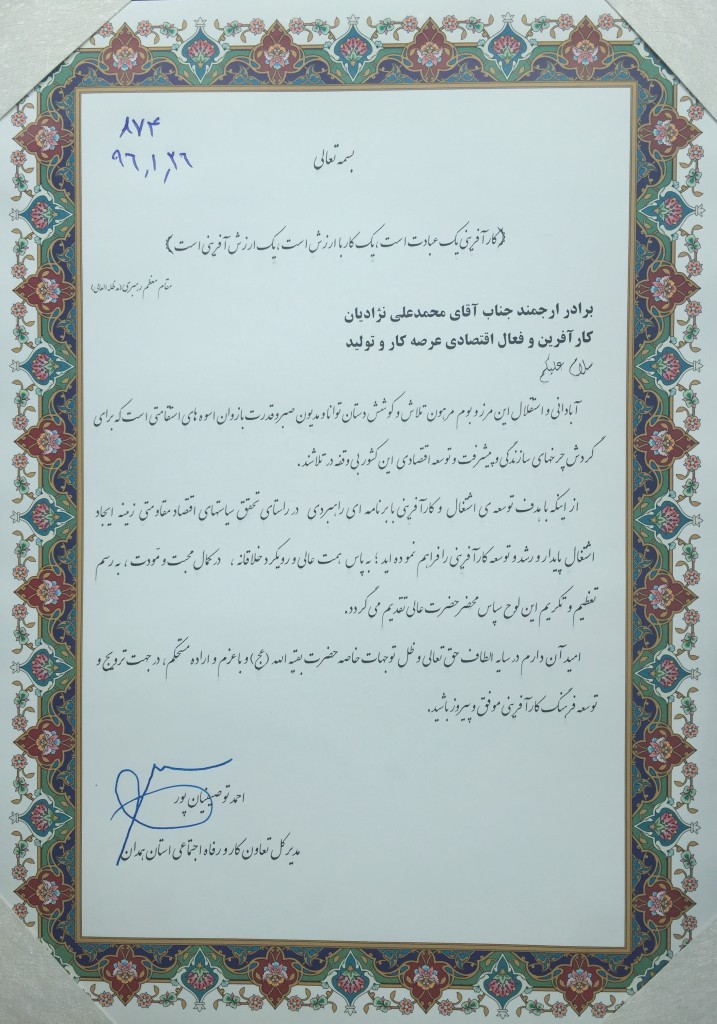 ۸۷۴
۹۶,۱,۲۶
بسمه تعالی
﴿کارآفرینی یک عبادت است، یک کار با ارزش است، یک ارزش آفرینی است﴾
مقام معظم رهبری(مدظله العالی)
برادر ارجمند جناب آقای محمدعلی نژادیان
کارآفرین و فعال اقتصادی عرصه کار و تولید
سلام علیکم
آبادانی و استقلال این مرز و بوم مرهون تلاش و کوشش دستان توانا و مدیون صبر و قدرت بازوان اسوه های استقامتی است که برای
گردش چرخهای سازندگی و پیشرفت و توسعه اقتصادی این کشور بی وقفه در تلاشند.
از اینکه با هدف توسعه ی اشتغال و کارآفرینی با برنامه ای راهبردی در راستای تحقق سیاستهای اقتصاد مقاومتی زمینه ایجاد
اشتغال پایدار و رشد و توسعه کارآفرینی را فراهم نموده اید؛ به پاس همت عالی و رویکرد خلاقانه ، در کمال محبت و مَودت ، به رسم
تعظیم و تکریم این لوح سپاس محضر حضرت عالی تقدیم می گردد.
امید آن دارم در سایه الطاف حق تعالی و ظل توجهات خاصه حضرت بقیه الله (عج) و با عزم و اراده مستحکم، در جهت ترویج و
توسعه فرهنگ کارآفرینی موفق و پیروز باشید.
احمد توصیفیان پور
مدیر کل تعاون کار و رفاه اجتماعی استان همدان